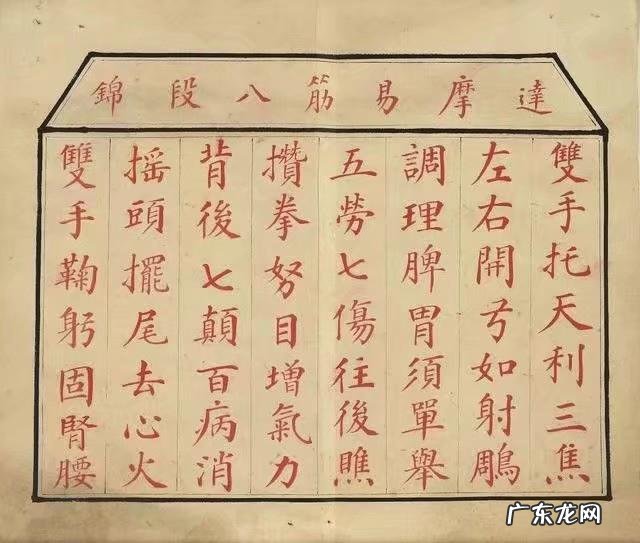 達摩易筋八段錦
雙手托天利三焦
左右開弓如射鵰
調理脾胃須單舉
五勞七傷往後瞧
攢拳努目增氣力
背後七顛百病消
搖頭擺尾去心火
雙手鞠躬固腎腰
广东龙网